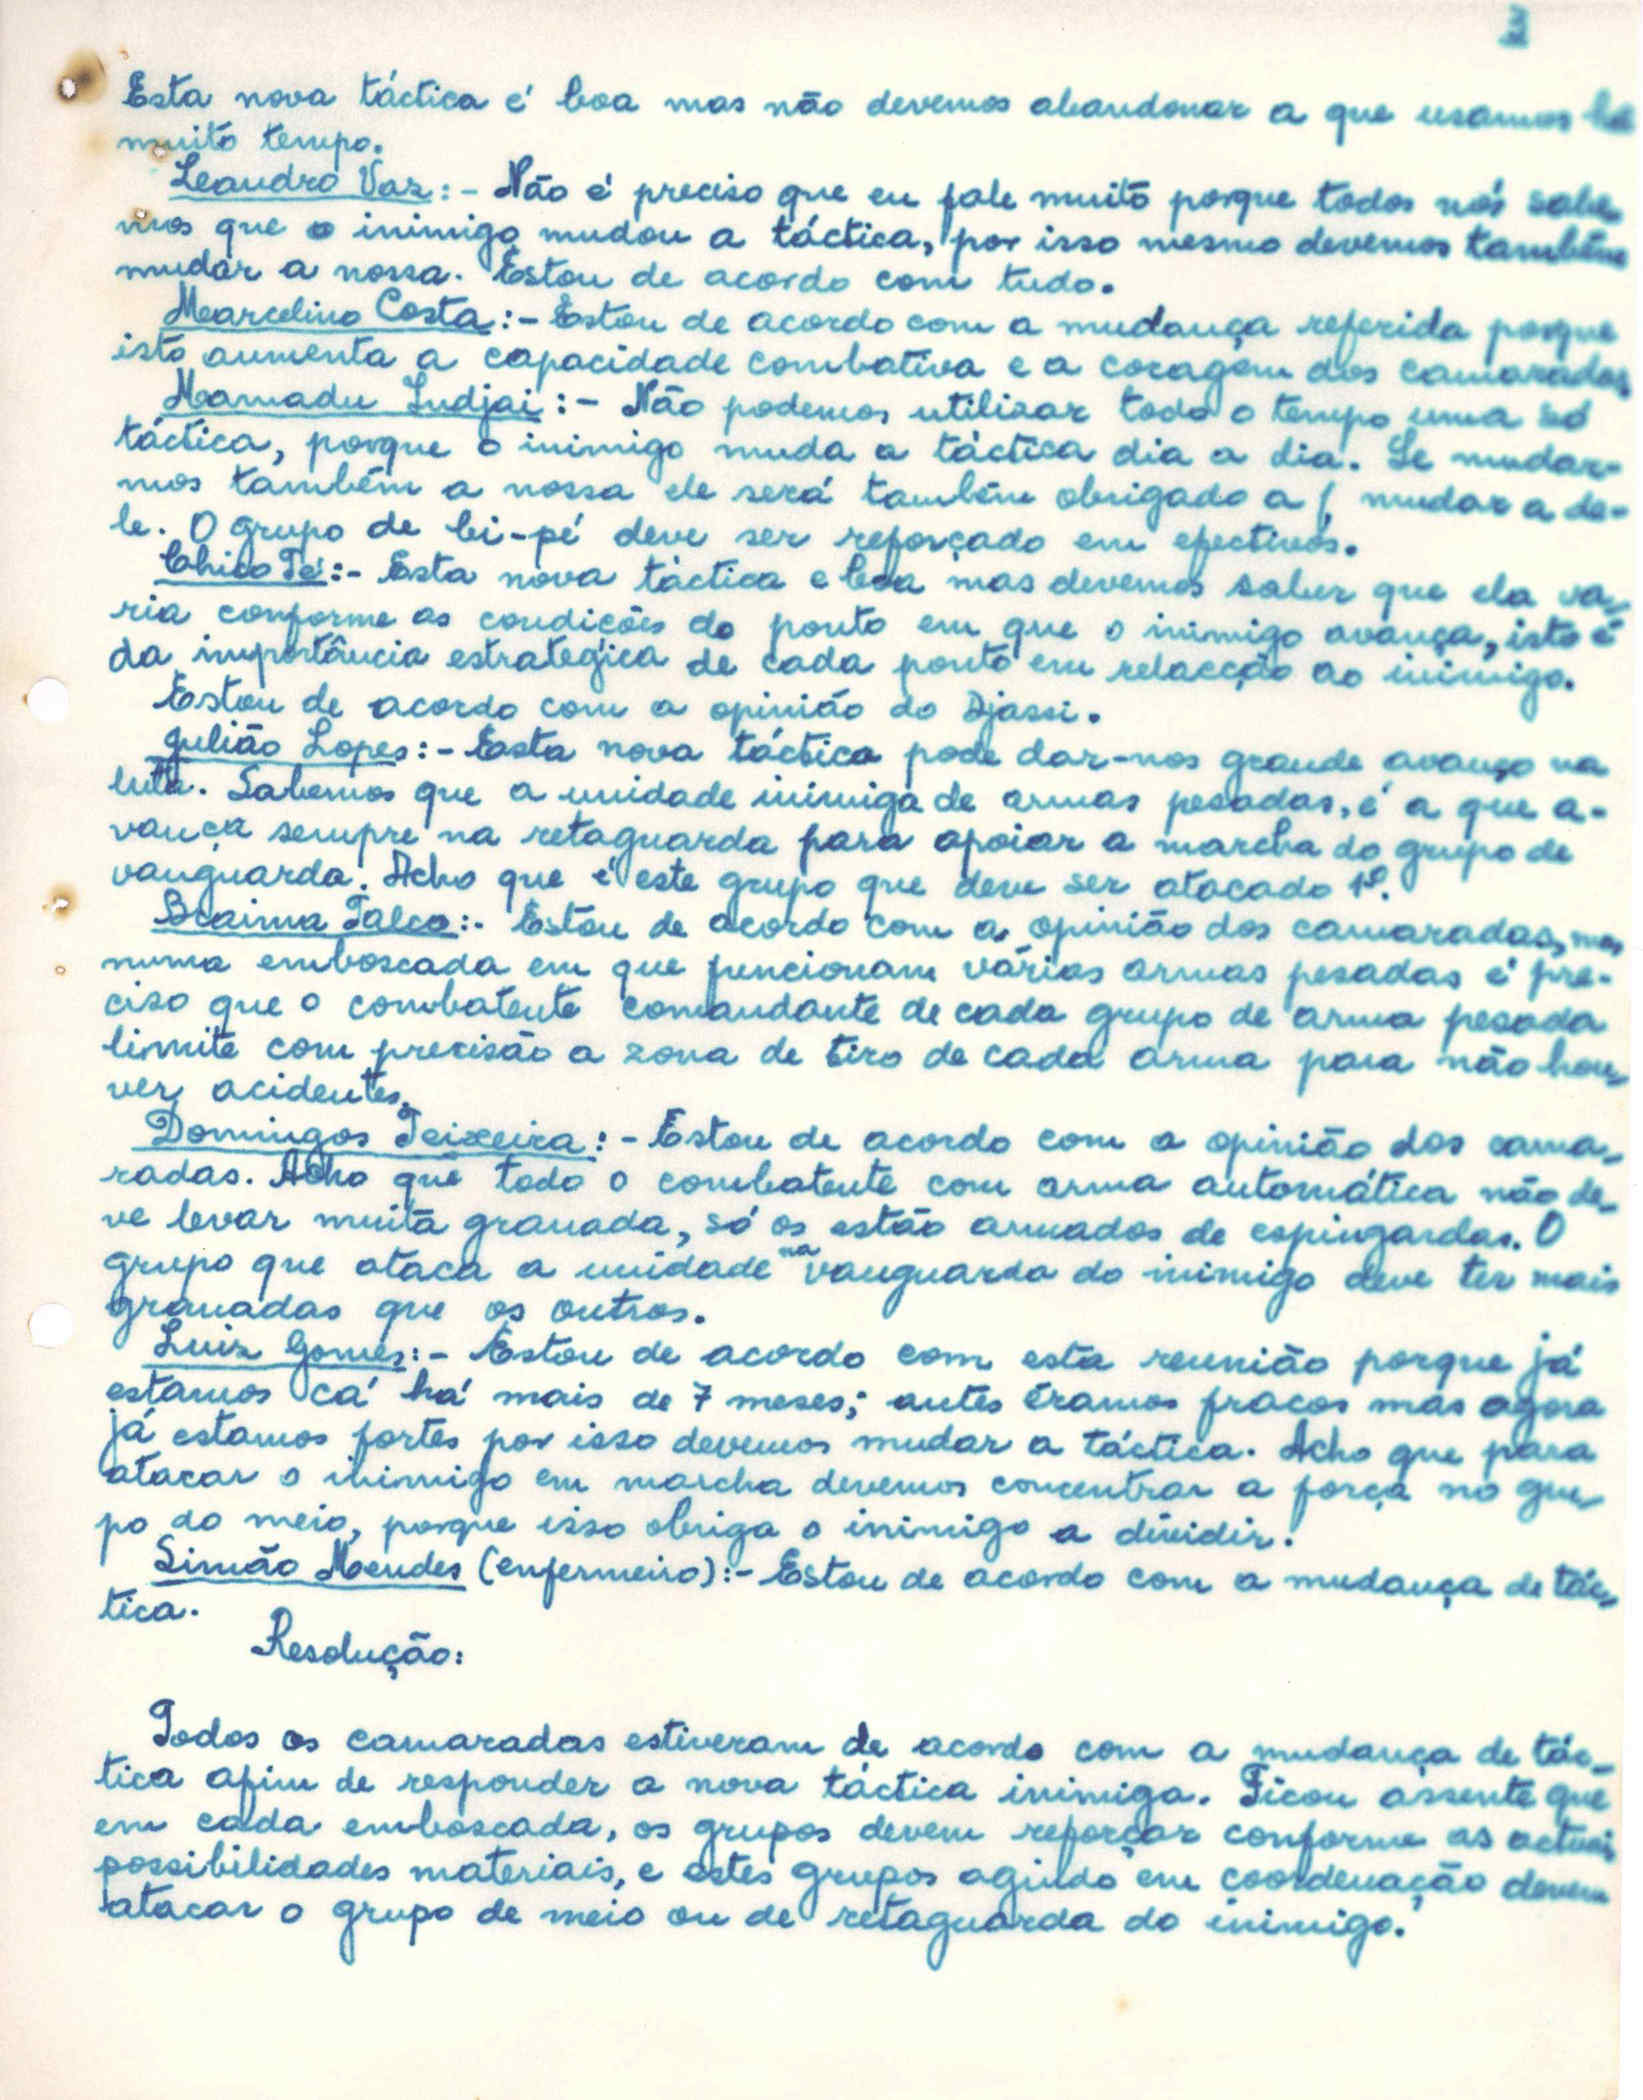 3
Esta nova táctica é boa mas não devemos abandonar a que usamos há
muito tempo.
Leandro Vaz:- Não é preciso que eu fale muito porque todos nós sabe-
mos que o inimigo mudou a táctica, por isso mesmo devemos também
mudar a nossa. Estou de acordo com tudo.
Marcelino Costa:- Estou de acordo com a mudança referida porque
isto aumenta a capacidade combativa e a coragem dos camaradas.
Mamadu Indjai:- Não podemos utilizar todo o tempo uma só
táctica, porque o inimigo muda a táctica dia a dia. Se mudar-
mos também a nossa ele será também obrigado a mudar a de-
le. O grupo de bi-pé deve ser reforçado em efectivos.
Chico Té:- Esta nova táctica e boa mas devemos saber que ela va-
ria conforme as condições do ponto em que o inimigo avança, isto é
da importância estrategica de cada ponto em relacção ao inimigo.
Estou de acordo com a opinião do Djassi.
Julião Lopes:- Easta nova táctica pode dar-nos grande avanço na
luta. Sabemos que a unidade inimiga de armas pesadas, é a que a-
vança sempre na retaguarda para apoiar a marcha do grupo de
vanguarda. Acho que é este grupo que deve ser atacado 1º.
Braima Talco:- Estou de acordo com a opinião dos camaradas, mas
numa emboscada em que funcionam várias armas pesadas é pre-
ciso que o combatente comandante de cada grupo de arma pesada
limite com precisão a zona de tiro de cada arma para não hou-
ver acidentes.
Domingos Teixeira:- Estou de acordo com a opinião dos cama-
radas. Acho que todo o combatente com arma automática não de-
ve levar muita granada, só os estão armados de espingardas. O
grupo que ataca a unidade na vanguarda do inimigo deve ter mais
granadas que os outros.
Luiz Gomes:- Estou de acordo com esta reunião porque já
estamos cá há mais de 7 meses; antes éramos fracos mas agora
já estamos fortes por isso devemos mudar a táctica. Acho que para
atacar o inimigo em marcha devemos concentrar a força no gru-
po do meio, porque isso obriga o inimigo a dividir.
Simão Mendes (enfermeiro):- Estou de acordo com a mudança de tác-
tica.
Resolução:
Todos os camaradas estiveram de acordo com a mudança de tác-
tica afim de responder a nova táctica inimiga. Ficou assente que
em cada emboscada, os grupos devem reforçar conforme as actuais
possibilidades materiais, e estes grupos agindo em coordenação devem
atacar o grupo de meio ou de retaguarda do inimigo.